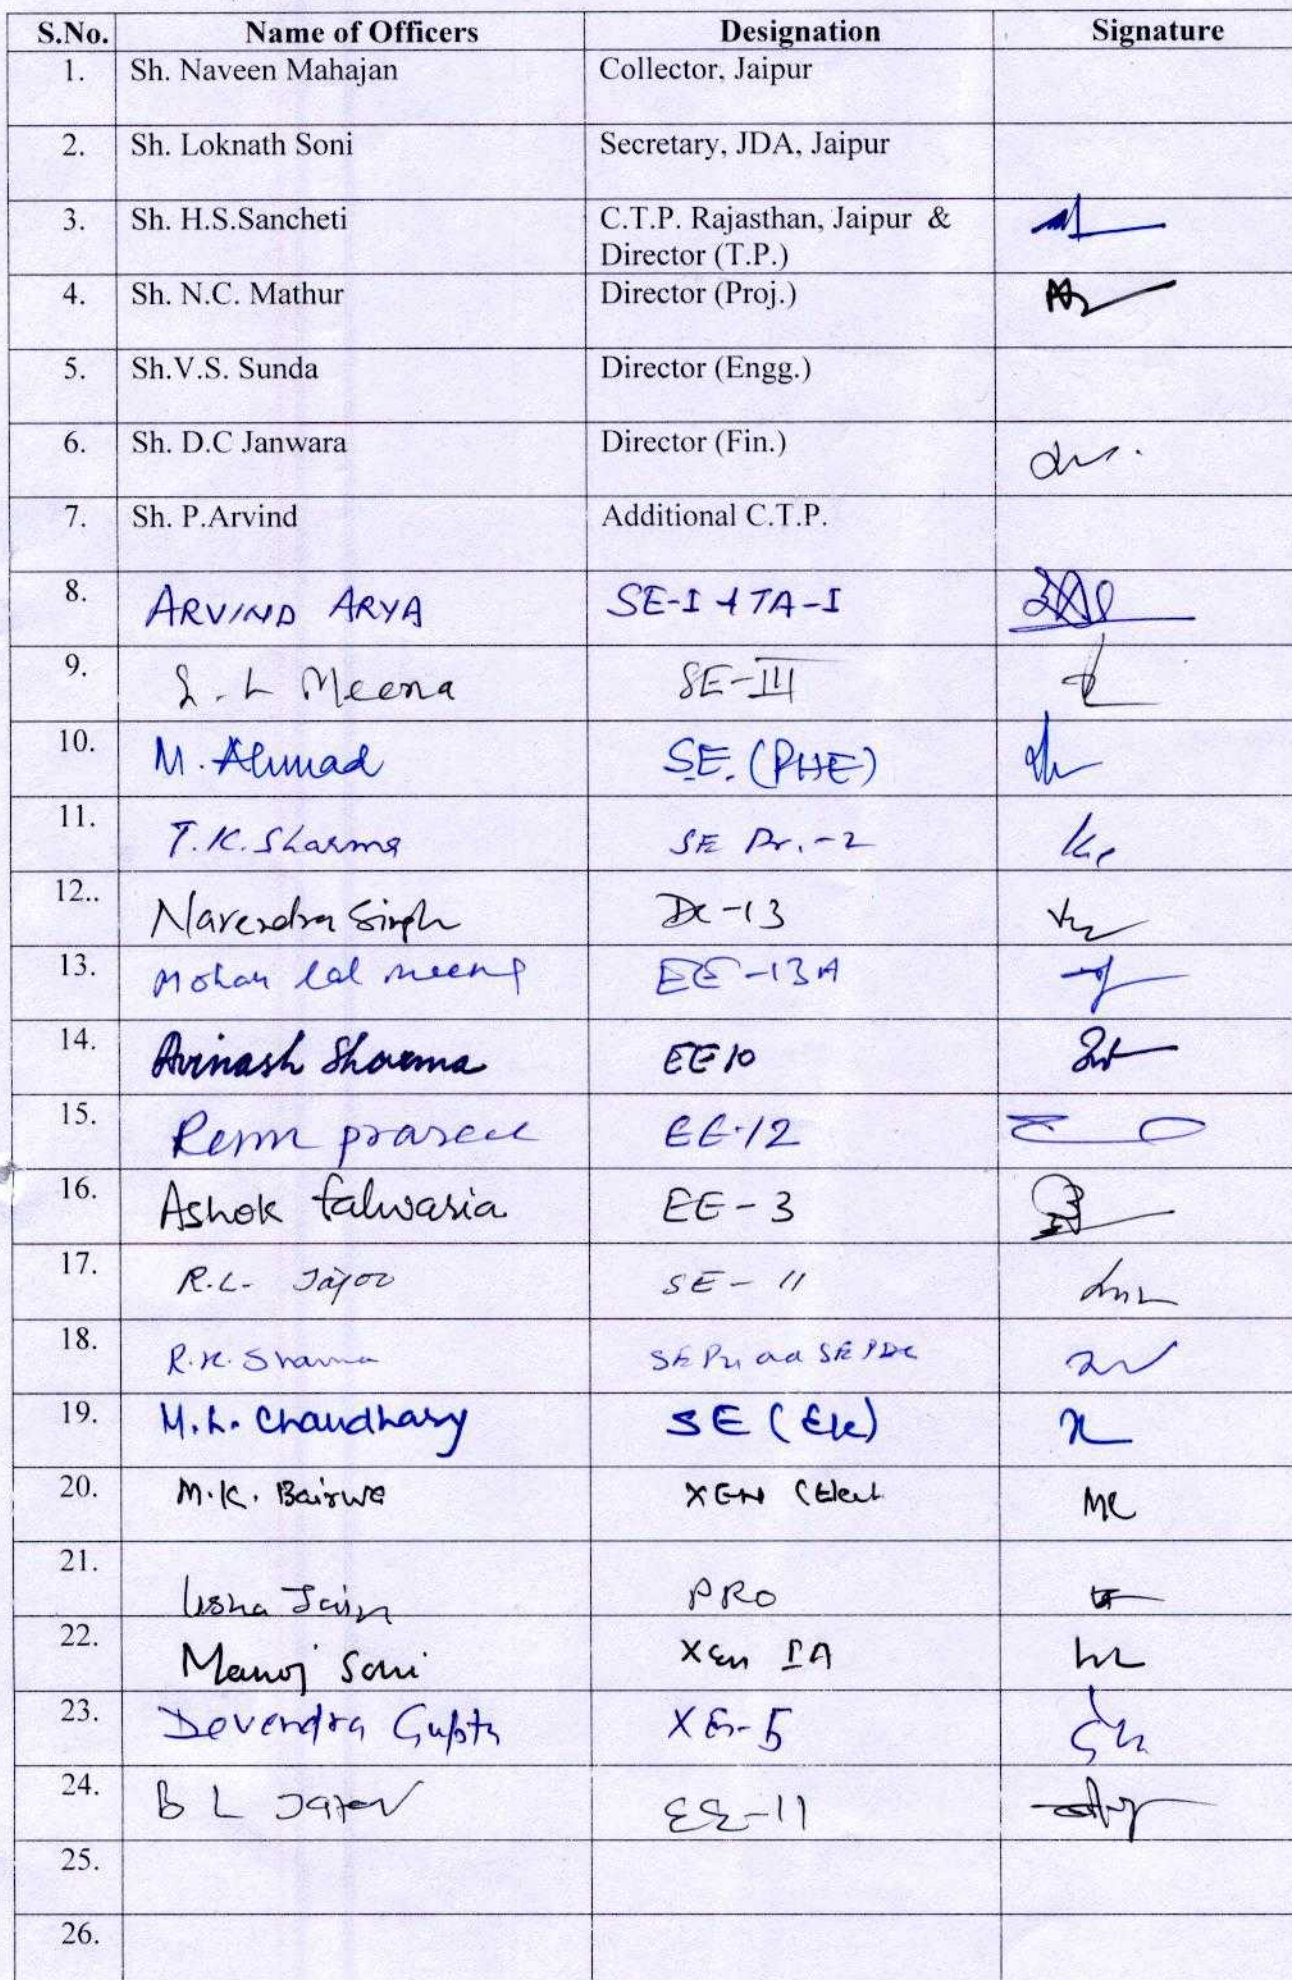 S.No. Name of Officers Designation Signature
1. Sh. Naveen Mahajan Collector, Jaipur
2. Sh. Loknath Soni Secretary, JDA, Jaipur
3. Sh. H.S.Sancheti C.T.P. Rajasthan, Jaipur &
Director (T.P.)
4. Sh. N.C. Mathur Director (Proj.)
5. Sh.V.S. Sunda Director (Engg.)
6. Sh. D.C Janwara Director (Fin.)
7. Sh. P.Arvind Additional C.T.P.
8. ARVIND ARYA SE-I & TA-I
9. L Meena SE-III
10. M. Ahmad SE. (PHE)
11. T.K. Sharma SE Pr.-2
12.. Narendra Singh DC-13
13. Mohan lal meena EE-13A
14. Avinash Sharma EE 10
15. prasad EE-12
16. Ashok talwaria EE-3
17. R.L. SE-11
18. R.K. Sharma
19. M.L. Chaudhary SE (Ele)
20. M.K. Bairwa XEN (Elect
21. Usha Jain PRO
22. Manoj Soni XEn IA
23. Devendra Gupta XEn-5
24. B L EE-11
25.
26.